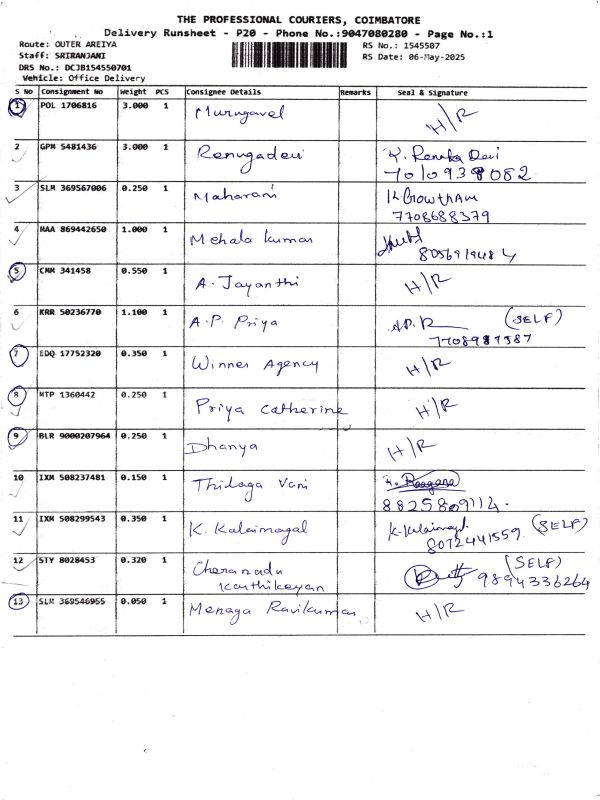 THE PROFESSIONAL COURIERS, COIMBATORE
Delivery Runsheet - P20 - Phone No.:9047080280 - Page No.:1
Route: OUTER AREIYA
Staff: SRIRANJANI
DRS No.: DCJB154550701
Vehicle: Office Delivery
RS No.: 1545507
RS Date: 06-May-2025
S No Consignment No Weight PCS Consignee Details Remarks Seal & Signature
1 POL 1706816 3.000 1 Murugavel H/R
2 GPM 5481436 3.000 1 Renugadevi K. Renuka Devi
7010938082
3 SLM 369567006 0.250 1 Maharani K Growtham
7708688379
4 MAA 869442650 1.000 1 Mehala kumar
8056919484
5 CMM 341458 0.550 1 A. Jayanthi H/R
6 KRR 50236770 1.100 1 A.P. Priya (SELF)
7708987387
7 EDQ 17752320 0.350 1 Winner Agency H/R
8 MTP 1360442 0.250 1 Priya Catherine H/R
9 BLR 9000207964 0.250 1 Dhanya H/R
10 IXM 508237481 0.150 1 Thilaga Vani
8825809114.
11 IXM 508299543 0.350 1 K. Kalaimagal K. Kalaimagal (SELF)
8072441559.
12 STY 8028453 0.320 1 (SELF)
Karthikeyan 9894336264
13 SLM 369546955 0.050 1 Menaga Ravikumar H/R